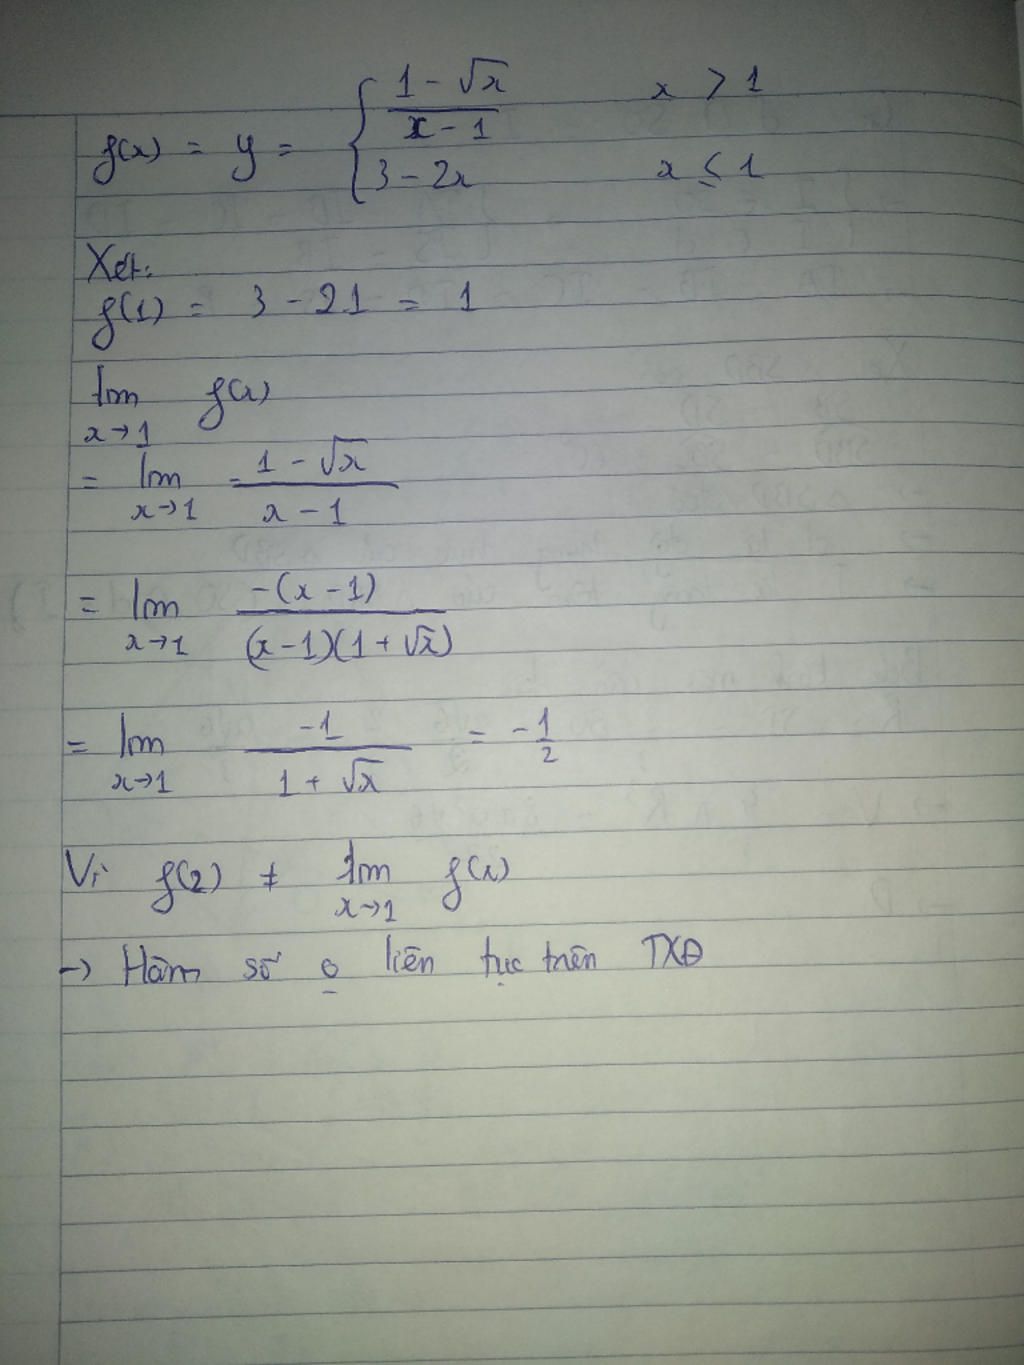 f(x) = y = { (1 - √x)/(x - 1)   x > 1
3 - 2x   x ≤ 1
Xét:
f(1) = 3 - 21 = 1
lim f(x)
x→1
= lim (1 - √x)/(x - 1)
x→1
= lim -(x - 1)/((x - 1)(1 + √x))
x→1
= lim -1/(1 + √x) = -1/2
x→1
Vì f(2) ≠ lim f(x)
x→1
→ Hàm số o liên tục trên TXĐ